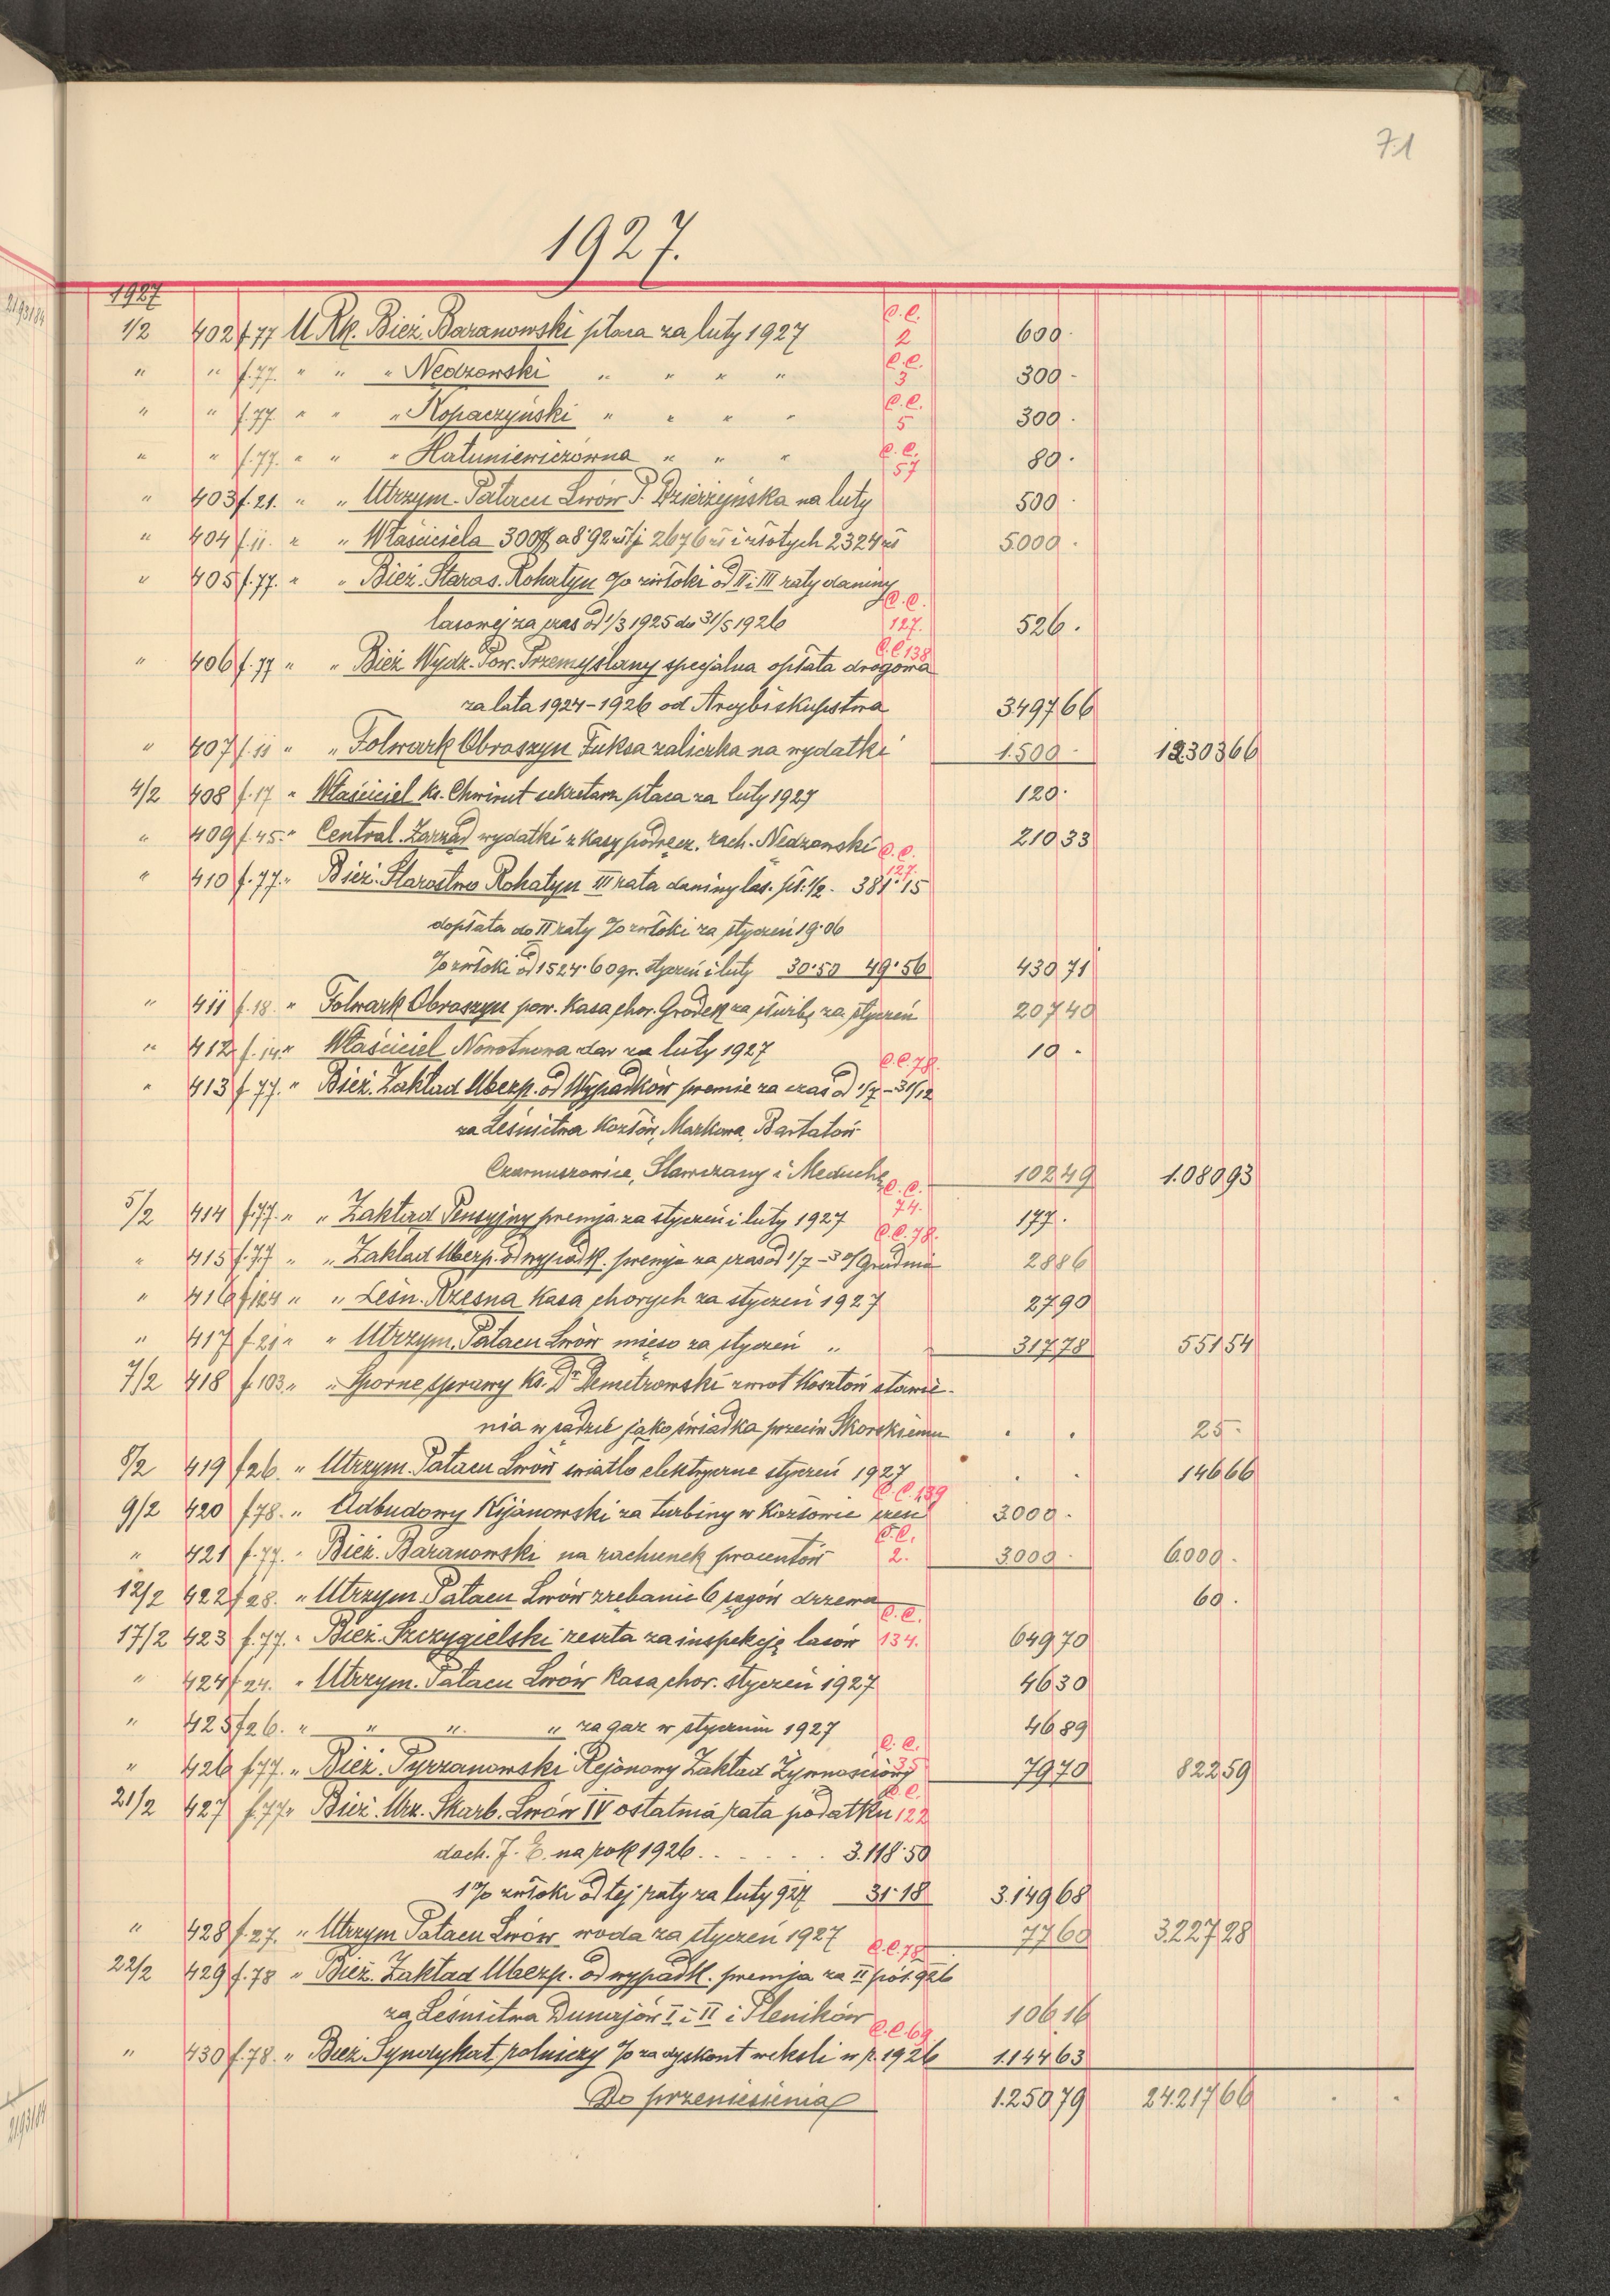 71
1927.
1927
1/2 402 f.77 U Rk. Bież. Baranowski płaca za luty 1927 C.C. 2 600 -
" " f.77. " " " Nedzowski " " " " C.C. 3 300 -
" " f.77. " " " Kopaczyński " " " " C.C. 5 300 -
" " f.77. " " " Hatuniewiczówna " " " C.C. 57 80 -
" 403 f.21. " " Utrzym. Pałacu Lwów P. Dzierżyńska na luty 500 -
" 404 f.11. " " Właściciela 300 a 8.92 zł tj. 2676 zł i złotych 2324 zł 5000 -
" 405 f.77. " " Bież. Staros. Rohatyn % zwłoki od II i III raty daniny
lasowej za czas od 1/3 1925 do 31/5 1926 C.C. 127. 526 .
" 406 f.77 " " Bież. Wydz. Pow. Przemyślany specjalna opłata drogowa C.C 138
za lata 1924-1926 od Arcybiskupstwa 3497 66
" 407 f.11 " " Folwark Obroszyn Fuksa zaliczka na wydatki 1.500 - 12303 66
4/2 408 f.17 " Właściciel ks. Chwirut sekretarz płaca za luty 1927 120 -
" 409 f.45. " Central. Zarząd wydatki z kasy podręcz. rach. Nedzowski 210 33
" 410 f.77. " Bież. Starostwo Rohatyn III rata daniny las. pł. 1/2. 381.15 C.C. 127.
dopłata do II raty % zwłoki za styczeń 19.06
% zwłoki od 1524.60 gr. styczeń i luty 30.50 49.56 430 71
" 411 f.18. " Folwark Obroszyn pow. Kasa chor. Gródek za służbę za styczeń 207 40
" 412 f.14. " Właściciel Nowotnowa dar za luty 1927 10 -
" 413 f.77. " Bież. Zakład Ubezp. od Wypadków premie za czas od 1/7 - 31/12 C.C. 78.
za Leśnictwa Kozłów, Markowa, Bartatów
Czarnuszowice, Stawczany i Meduchę 102 49 1.080 93
5/2 414 f.77. " " Zakład Pensyjny premja za styczeń i luty 1927 C.C. 74. 177 .
" 415 f.77 " " Zakład Ubezp. od wypadk. premja za czas od 1/7 - 30/ Grudnia C.C. 78. 28 86
" 416 f.124 " " Leśn. Rzesna kasa chorych za styczeń 1927 27 90
" 417 f.21 " " Utrzym. Pałacu Lwów mięso za styczeń " 317 78 551 54
7/2 418 f.103. " " Sporne sprawy Ks. Dr. Demetrowski zwrot kosztów stawie-
nia w sądzie jako świadka przeciw Skorskiemu . . 25 -
8/2 419 f.26. " Utrzym. Pałacu Lwów światło elektryczne styczeń 1927 . . 146 66
9/2 420 f.78. " Odbudowy Kijanowski za turbiny w Kozłowie C.C. 139 3000 -
" 421 f.77. " Bież. Baranowski na rachunek procentów C.C. 2. 3000 - 6000 -
12/2 422 f.28. " Utrzym. Pałacu Lwów zrębanie 6 sągów drzewa 60 .
17/2 423 f.77. " Bież. Szczygielski reszta za inspekcję lasów C.C. 134. 649 70
" 424 f.24. " Utrzym. Pałacu Lwów kasa chor. styczeń 1927 46 30
" 425 f.26. " " " " za gaz w styczniu 1927 46 89
" 426 f.77. " Bież. Pyrzanowski Rejonowy Zakład Żywnościowy C.C. 35 79 70 822 59
21/2 427 f.77. " Bież. Urz. Skarb. Lwów IV ostatnia rata podatku C.C. 122
doch. J. E. na rok 1926 . . . . . . 3.118.50
1% zwłoki od tej raty za luty 927 31.18 3.149 68
" 428 f.27. " Utrzym Pałacu Lwów woda za styczeń 1927 77 60 3.227 28
22/2 429 f.78 " Bież. Zakład Ubezp. od wypadk. premja za II pół. 926 C.C. 78
za Leśnictwa Dunajów I i II i Pleników 106 16
" 430 f.78. " Bież. Syndykat rolniczy % za dyskont weksli w r. 1926 C.C. 69. 1.144 63
Do przeniesienia 1.250 79 24.217 66 . .